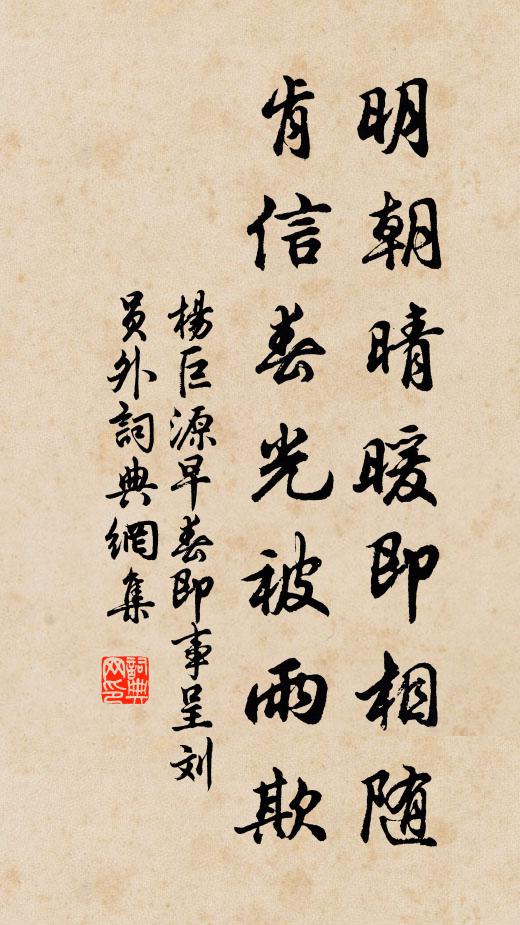 明朝晴暖即相随
肯信春光被雨欺
楊巨源早春即事呈刘
员外詞典網集
詞典
网印